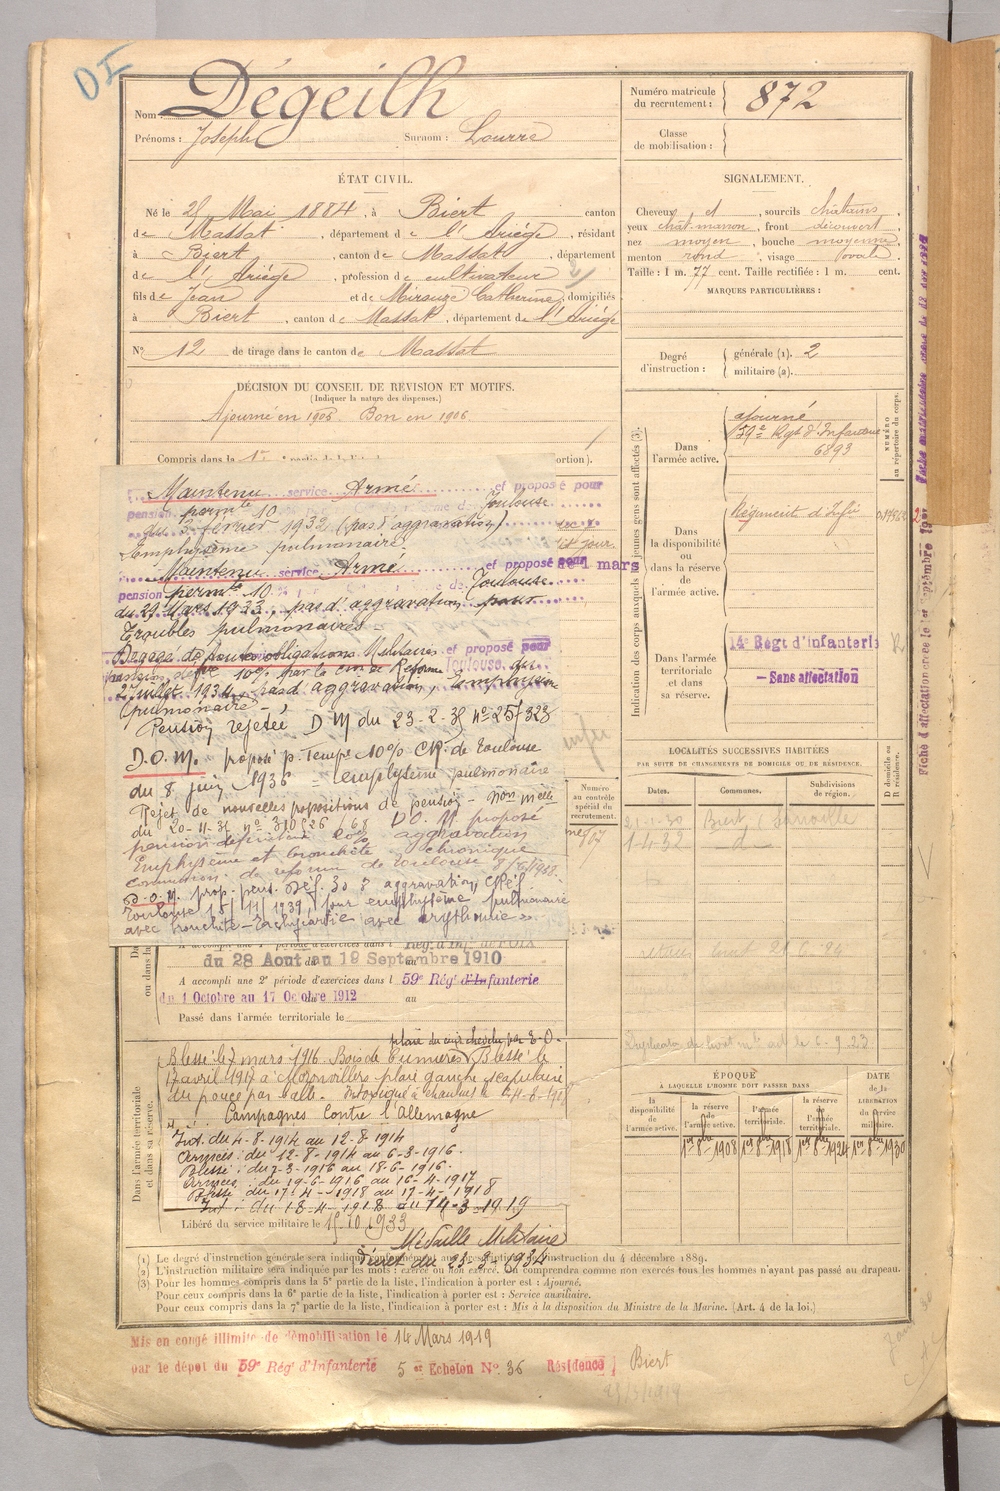 DI
Nom : Dégeilh
Prénoms : Joseph Surnom : Lourre
Numéro matricule du recrutement : 872
Classe de mobilisation :
ÉTAT CIVIL.
Né le Mai 1884, à Biert canton
de Massat, département de l'Ariège, résidant
à Biert, canton de Massat, département
de l'Ariège, profession de cultivateur
fils de Jean et de Mirouze Catherine, domiciliés
à Biert, canton de Massat, département de l'Ariège
N° 12 de tirage dans le canton de Massat
SIGNALEMENT.
Cheveux et, sourcils châtains,
yeux chât-marron, front découvert,
nez moyen, bouche moyenne,
menton rond, visage ovale.
Taille : 1 m. 77 cent. Taille rectifiée : 1 m. cent.
MARQUES PARTICULIÈRES :
Degré d'instruction : générale (1). 2
militaire (2).
DÉCISION DU CONSEIL DE REVISION ET MOTIFS.
(Indiquer la nature des dispenses.)
Ajourné en 1905 Bon en 1906
Compris dans la 1re partie de la liste
Maintenu service Armé et proposé pour
pension permte 10 Toulouse
du 3 février 1932 (pas d'aggravation)
Emphysème pulmonaire.
Maintenu service Armé et proposé pour
pension permte 10 de Toulouse
du 29 Mars 1933, pas d'aggravation pour
Troubles pulmonaires
Dégagé de toutes obligations Militaires et proposé pour
10% par la Réforme Toulouse du
2 Juillet 1934, pas d'aggravation, Emphysème
pulmonaire -
Pension rejetée D M du 23-2-35 n° 257323
D.O.M. proposé p. temp. 10% CR. de Toulouse
du 8 juin 1936 - emphysème pulmonaire
Rejet de nouvelles propositions de pension - Non melle
du 20-11-36 D.O.M proposé
pension définitive aggravation
Emphysème et bronchite chronique
Commission de réforme de Toulouse 8/6/1938.
D.O.M. prop. pens. Déf. 30 % aggravation CRéf.
Toulouse 15/11/1939, pour emphysème pulmonaire
avec bronchite - Tachycardie avec arythmie».
Indication des corps auxquels les jeunes gens sont affectés (3).
Dans l'armée active.
ajourné
59e Rgt d'Infanterie
6893
NUMÉRO au répertoire du corps.
Dans la disponibilité ou dans la réserve de l'armée active.
Régiment d'Infie
Dans l'armée territoriale et dans sa réserve.
14e Régt d'infanterie
- Sans affectation
LOCALITÉS SUCCESSIVES HABITÉES
PAR SUITE DE CHANGEMENTS DE DOMICILE OU DE RÉSIDENCE.
Dates. Communes. Subdivisions de région. D domicile ou R résidence.
21-1-30 Biert
1-4-32 d°
Numéro au contrôle spécial du recrutement.
A accompli une 1e période d'exercices dans l Rég. d'Inf. de Foix
du 28 Aout au 19 Septembre 1910
A accompli une 2e période d'exercices dans l 59e Rég d'Infanterie
du 1 Octobre au 17 Octobre 1912 au
Passé dans l'armée territoriale le
Dans l'armée territoriale et dans sa réserve.
plaie du cuir chevelu par E.O.
Blessé le 7 mars 1916 Bois de Cumières Blessé le
17 avril 1917 à Moronvillers plaie gauche
du pouce par balle. Intoxiqué à
Campagnes Contre l'Allemagne
Int. du 4-8-1914 au 12-8-1914
Armées : du 12-8-1914 au 6-3-1916.
Blessé : du 7-3-1916 au 18-6-1916.
Armées : du 19-6-1916 au 16-4-1917
Blessé : du 17-4-1918 au 17-4-1918
Int : du 18-4-1918 au 14-3-1919
Libéré du service militaire le 15-10-1933
Médaille Militaire
Décret du 23-3-1934
ÉPOQUE
À LAQUELLE L'HOMME DOIT PASSER DANS
la disponibilité de l'armée active. la réserve de l'armée active. l'armée territoriale. la réserve de l'armée territoriale.
DATE de la LIBÉRATION du service militaire.
1er 8bre 1908 1er 8bre 1918 1er 8bre 1924 1er 8bre 1930
(1) Le degré d'instruction générale sera indiqué conformément aux prescriptions de l'instruction du 4 décembre 1889.
(2) L'instruction militaire sera indiquée par les mots : exercé ou non exercé. On comprendra comme non exercés tous les hommes n'ayant pas passé au drapeau.
(3) Pour les hommes compris dans la 5e partie de la liste, l'indication à porter est : Ajourné.
Pour ceux compris dans la 6e partie de la liste, l'indication à porter est : Service auxiliaire.
Pour ceux compris dans la 7e partie de la liste, l'indication à porter est : Mis à la disposition du Ministre de la Marine. (Art. 4 de la loi.)
Mis en congé illimité de démobilisation le 14 Mars 1919
par le dépot du 59e Rég d'Infanterie 5 er Echelon N° 36 Résidence Biert